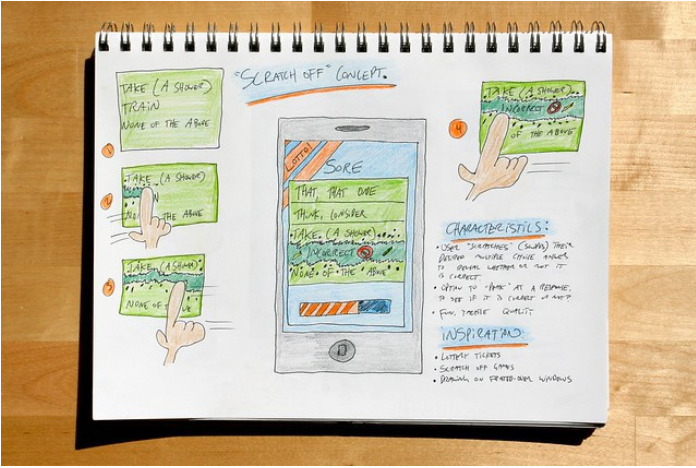 "SCRATCH OFF" CONCEPT.
1
TAKE (A SHOWER)
TRAIN
NONE OF THE ABOVE
2
TAKE (A SHOWER)
IN
NO THE ABOVE
3
TAKE (A SHOWER)
NONE OF VE
LOTTO!
SORE
THAT, THAT ONE
THINK, CONSIDER
TAKE (A SHOWER)
INCORRECT
NONE OF THE ABOVE
4
TAKE (A SHOWER)
INCORRECT
OF THE ABOVE
CHARACTERISTICS:
• USER "SCRATCHES" (SWIPES) THEIR
DESIRED MULTIPLE CHOICE ANSWER
TO REVEAL WHETHER OR NOT IT
IS CORRECT
• OPTION TO "PEEK" AT A RESPONSE,
TO SEE IF IT IS CORRECT OR NOT
• FUN, TACTILE QUALITY
INSPIRATION:
• LOTTERY TICKETS
• SCRATCH OFF GAMES
• DRAWING ON FROSTED-OVER WINDOWS